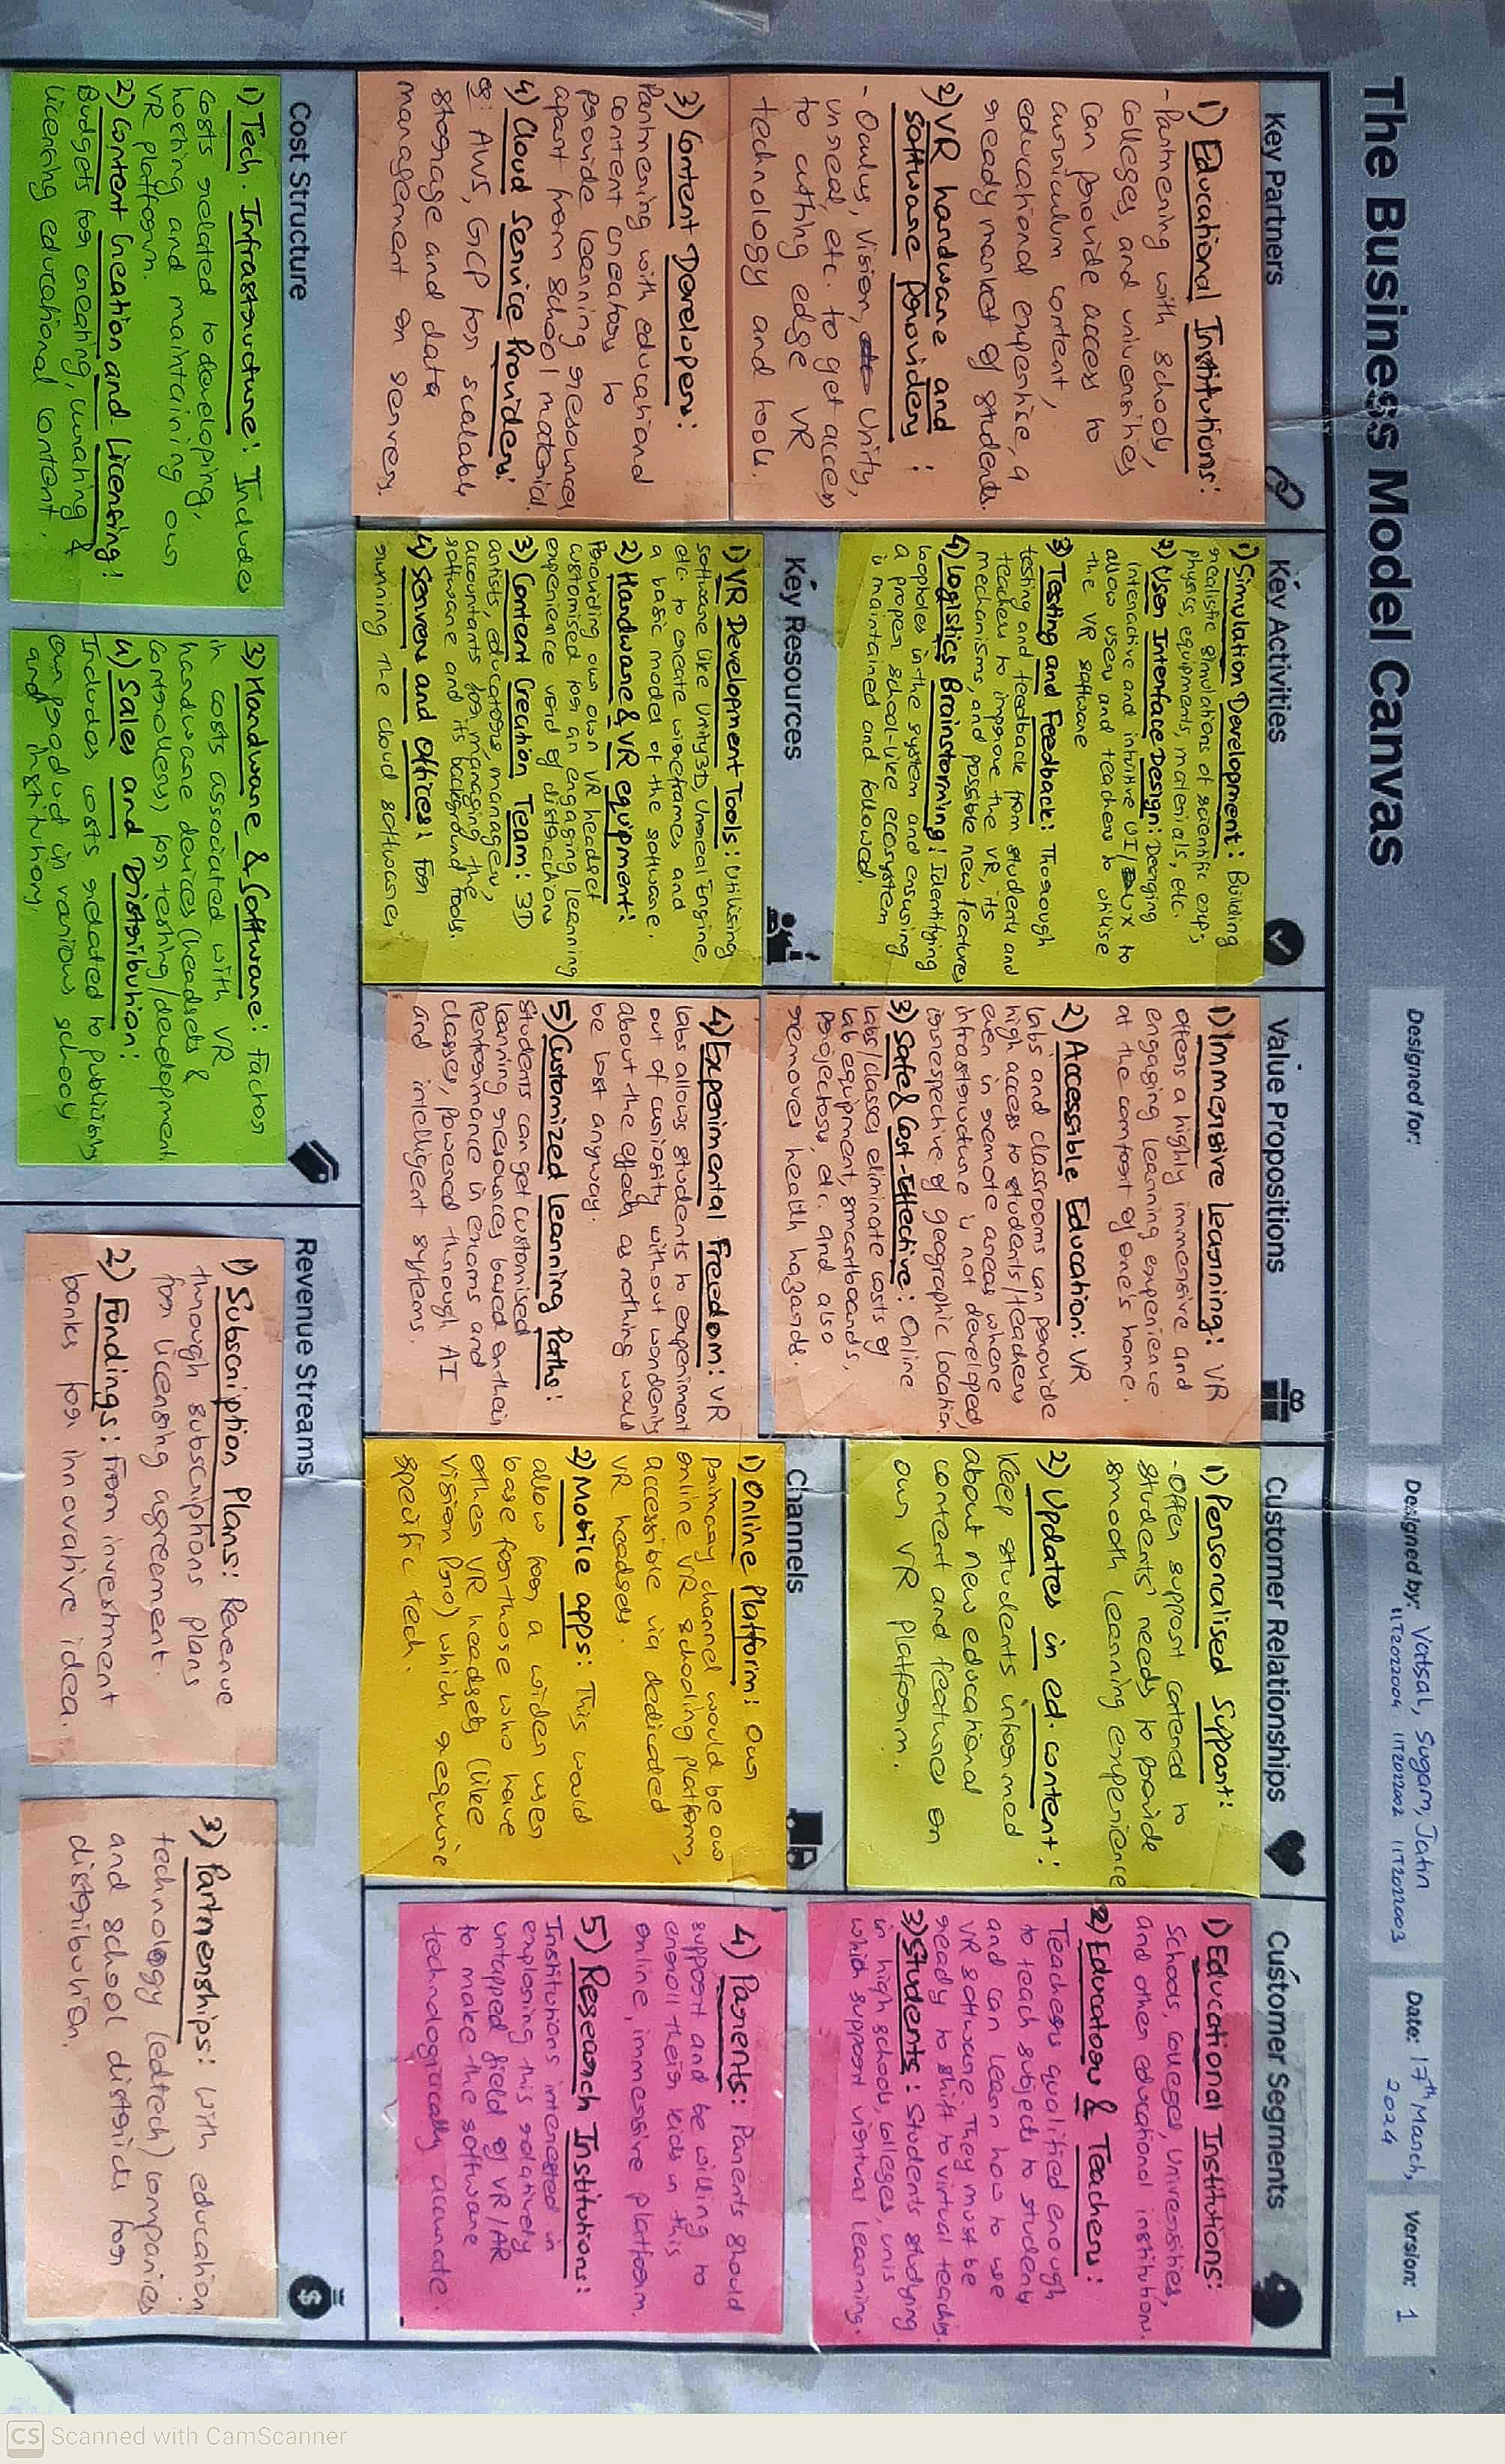 The Business Model Canvas
Designed for:
Designed by: Vatsal, Sugam, Jatin
IIT2022004 IIT2022002 IIT2022003
Date: 17th March,
2024
Version: 1
Key Partners
1) Educational Institutions:
- Partnering with schools,
colleges, and universities
can provide access to
curriculum content,
educational expertise, a
ready market of students.
2) VR hardware and
software providers:
- Oculus, Vision, Unity,
unreal, etc. to get access
to cutting edge VR
technology and tools.
3) Content Developers:
Partnering with educational
content creators to
provide learning resources
apart from school material.
4) Cloud Service Providers:
eg: AWS, GCP for scalable
storage and data
management on servers.
Key Activities
1) Simulation Development: Building
realistic simulations of scientific exp;
physics, equipments, materials, etc.
2) User Interface Design: Designing
interactive and intuitive UI/UX to
allow users and teachers to utilise
the VR software
3) Testing and Feedback: Thorough
testing and feedback from students and
teachers to improve the VR, its
mechanisms, and possible new features
4) Logistics Brainstorming: Identifying
loopholes in the system and ensuring
a proper school-like ecosystem
is maintained and followed.
Key Resources
1) VR Development Tools: Utilising
software like Unity3D, Unreal Engine,
etc to create wireframes and
a basic model of the software.
2) Hardware & VR equipment:
Providing our own VR headset
customised for an engaging learning
experience void of distractions
3) Content Creation Team: 3D
artists, educators, managers,
accountants for managing the
software and its background tools.
4) Servers and Offices: For
running the cloud softwares
Value Propositions
1) Immersive Learning: VR
offers a highly immersive and
engaging learning experience
at the comfort of one's home.
2) Accessible Education: VR
labs and classrooms can provide
high access to students/teachers
even in remote areas where
infrastructure is not developed,
irrespective of geographic location
3) Safe & Cost-Effective: Online
labs/classes eliminate costs of
lab equipment, smartboards,
projectors, etc. and also
removes health hazards.
4) Experimental Freedom: VR
labs allows students to experiment
out of curiosity without wondering
about the effects as nothing would
be lost anyway.
5) Customized Learning Paths:
Students can get customised
learning resources based on their
performance in exams and
classes, powered through AI
and intelligent systems.
Customer Relationships
1) Personalised Support:
- Offer support catered to
students' needs to provide
smooth learning experience
2) Updates in ed. content:
Keep students informed
about new educational
content and features on
our VR platform.
Channels
1) Online Platform: Our
primary channel would be our
online VR schooling platform,
accessible via dedicated
VR headsets.
2) Mobile apps: This would
allow for a wider user
base for those who have
other VR headsets (like
Vision Pro) which require
specific tech.
Customer Segments
1) Educational Institutions:
Schools, colleges, universities,
and other educational institutions.
2) Educators & Teachers:
Teachers qualified enough
to teach subjects to students
and can learn how to use
VR software. They must be
ready to shift to virtual teaching.
3) Students: Students studying
in high schools, colleges, unis
which support virtual learning.
4) Parents: Parents should
support and be willing to
enroll their kids in this
online, immersive platform.
5) Research Institutions:
Institutions interested in
exploring this relatively
untapped field of VR/AR
to make the software
technologically accurate.
Cost Structure
1) Tech. Infrastructure: Includes
costs related to developing,
hosting and maintaining our
VR platform.
2) Content Creation and Licensing:
Budgets for creating, curating &
licensing educational content.
3) Hardware & Software: Factor
in costs associated with VR
hardware devices (headsets &
controllers) for testing/development
4) Sales and Distribution:
Includes costs related to publicising
our product in various schools
and institutions.
Revenue Streams
1) Subscription Plans: Revenue
through subscriptions plans
for licensing agreement.
2) Fundings: From investment
banks for innovative idea.
3) Partnerships: With education
technology (edtech) companies
and school districts for
distribution.
CS Scanned with CamScanner